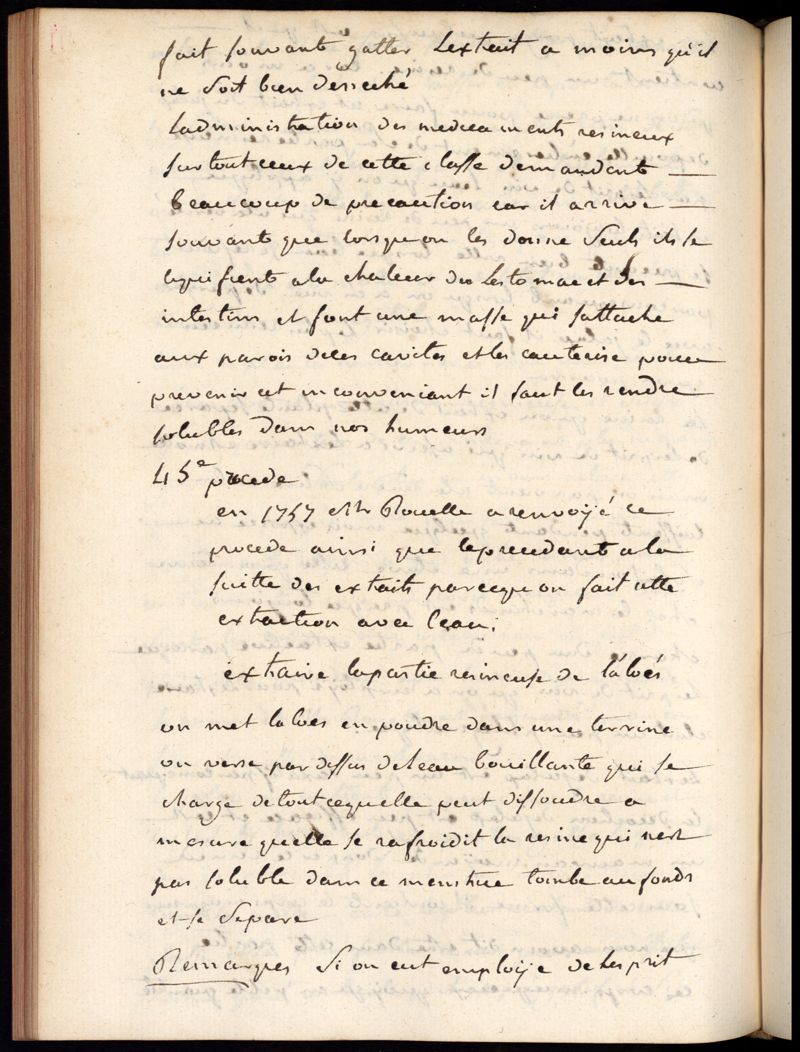 fait souvant gatter Lextrait a moins qu'il
ne soit bien desseché
Ladministration des medicaments resineux
surtout ceux de cette classe demandent
beaucoup de precaution car il arrive
souvant que lorsquon les donne seuls ils se
liquifient ala chaleur du Lestomac et des
intestins et font une masse qui sattache
aux parois de ces cavites et les cauterise pour
prevenir cet inconveniant il faut les rendre
solubles dans nos humeurs
45e procede
en 1757 Mr Rouelle a renvoyé ce
procede ainsi que leprecedant ala
suitte des extraits parcequ on fait cette
extraction avec leau;
extraire lapartie resineuse de l'aloés
on met laloes en poudre dans une terrine
on verse par dessus deleau bouillante qui se
charge detout cequelle peut dissoudre a
mesure quelle se rafroidit la resine qui nest
pas soluble dans ce menstrue tombe au fonds
et se separe
Remarques si on eut employe de lesprit